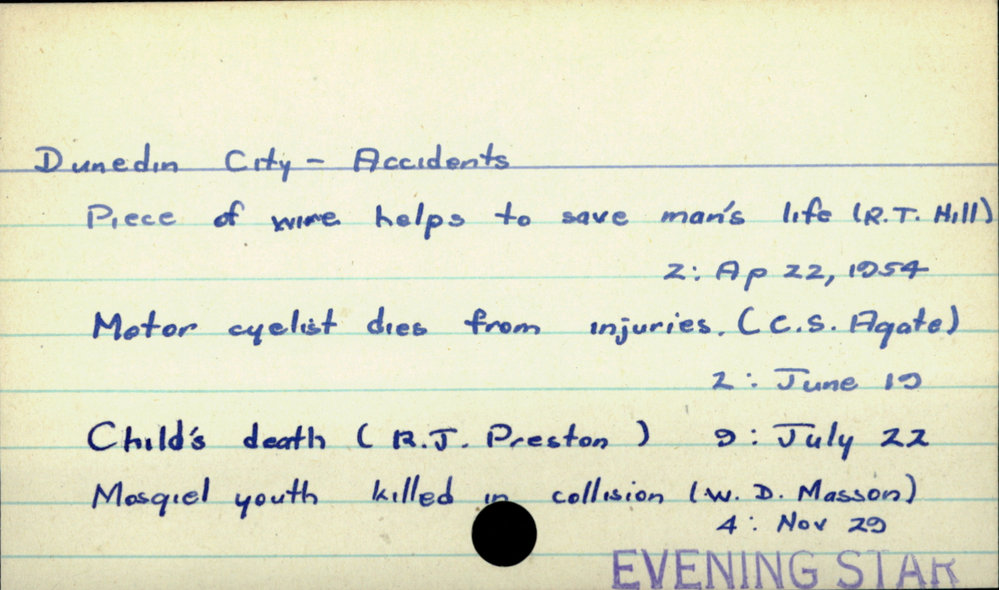 Dunedin City - Accidents
Piece of wire helps to save man's life (R.T. Hill)
2: Ap 22, 1954
Motor cyclist dies from injuries. (C.S. Agate)
2: June 19
Child's death (R.J. Preston) 9: July 22
Mosgiel youth killed in collision (W. D. Masson)
4: Nov 29
EVENING STAR